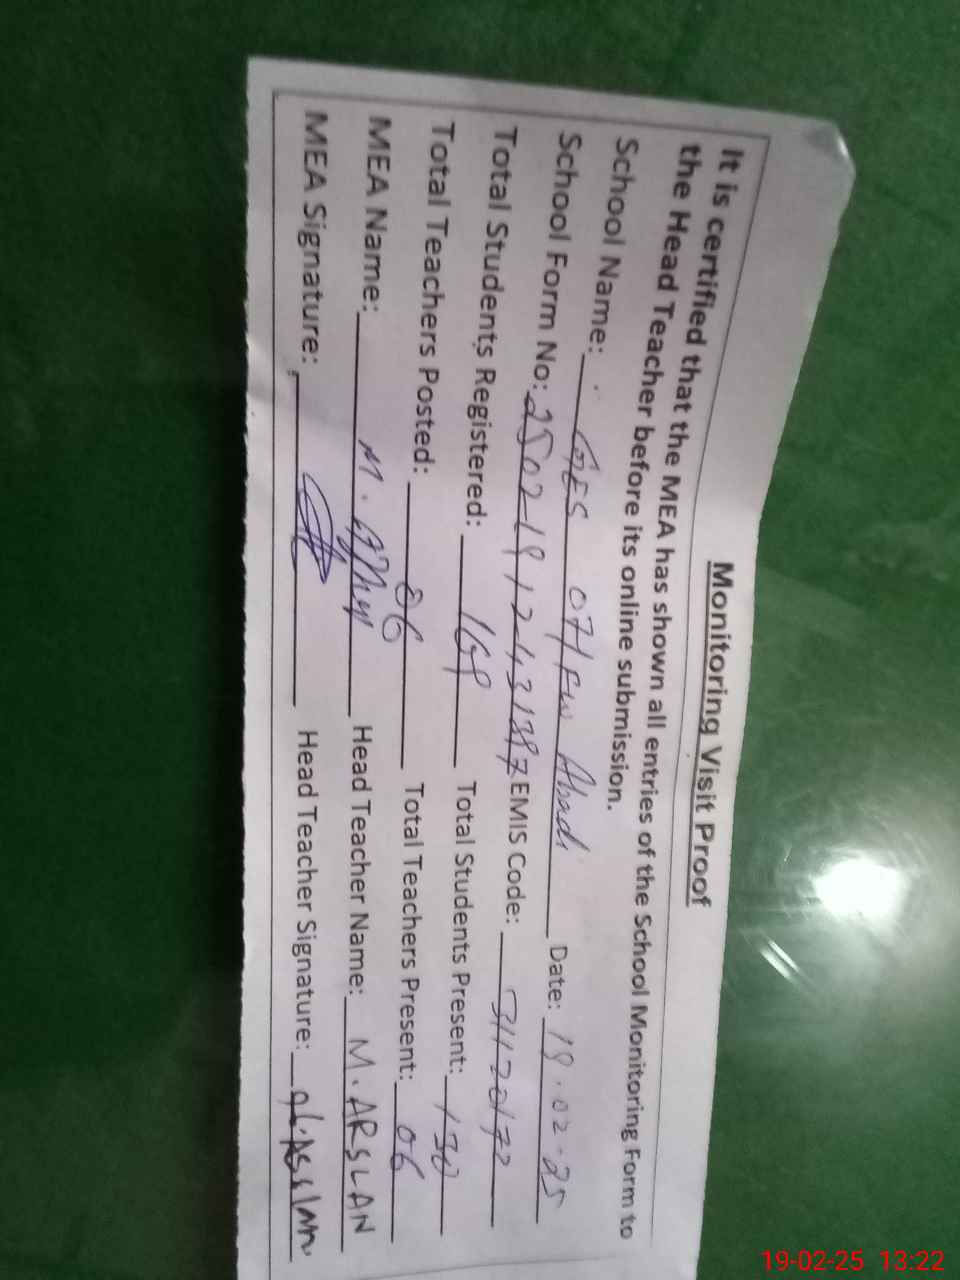 Monitoring Visit Proof
It is certified that the MEA has shown all entries of the School Monitoring Form to
the Head Teacher before its online submission.
School Name: GES 071 Abadi Date: 19.02.25
School Form No: EMIS Code: 31120172
Total Students Registered: 169 Total Students Present: 130
Total Teachers Posted: 06 Total Teachers Present: 06
MEA Name: M. Head Teacher Name: M. ARSLAN
MEA Signature: Head Teacher Signature:
19-02-25 13:22